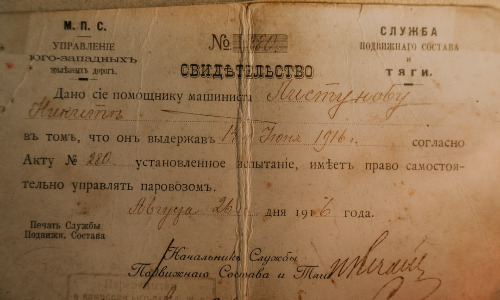 М. П. С.
УПРАВЛЕНІЕ
ЮГО-ЗАПАДНЫХЪ
желѣзныхъ дорогъ.
СЛУЖБА
ПОДВИЖНАГО СОСТАВА
и
ТЯГИ.
№
СВИДѢТЕЛЬСТВО
Дано сіе помощнику машиниста Листунову
Никитѣ
въ томъ, что онъ выдержавъ Іюня 1916 г. согласно
Акту № 280 установленное испытаніе, имѣетъ право самостоя-
тельно управлять паровозомъ.
Августа 26 дня 1916 года.
Печать Службы
Подвижн. Состава
Начальникъ Службы
Подвижнаго Состава и Тяги